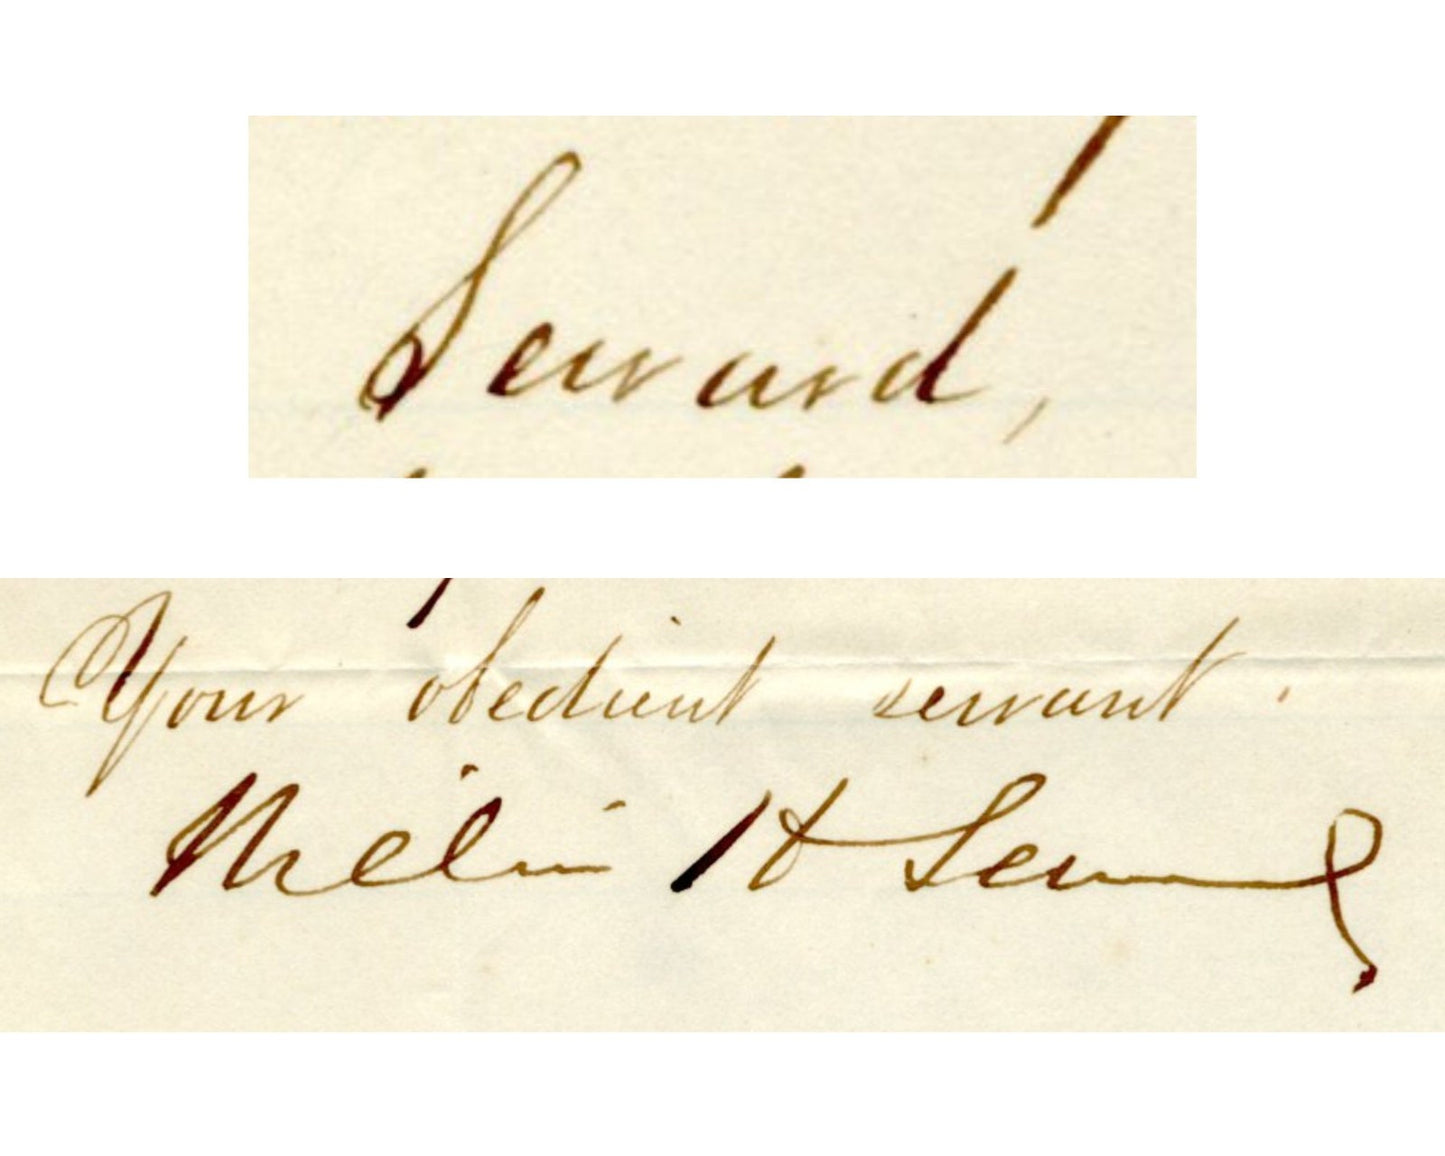 Seward,
Your obedient servant.
William H Seward